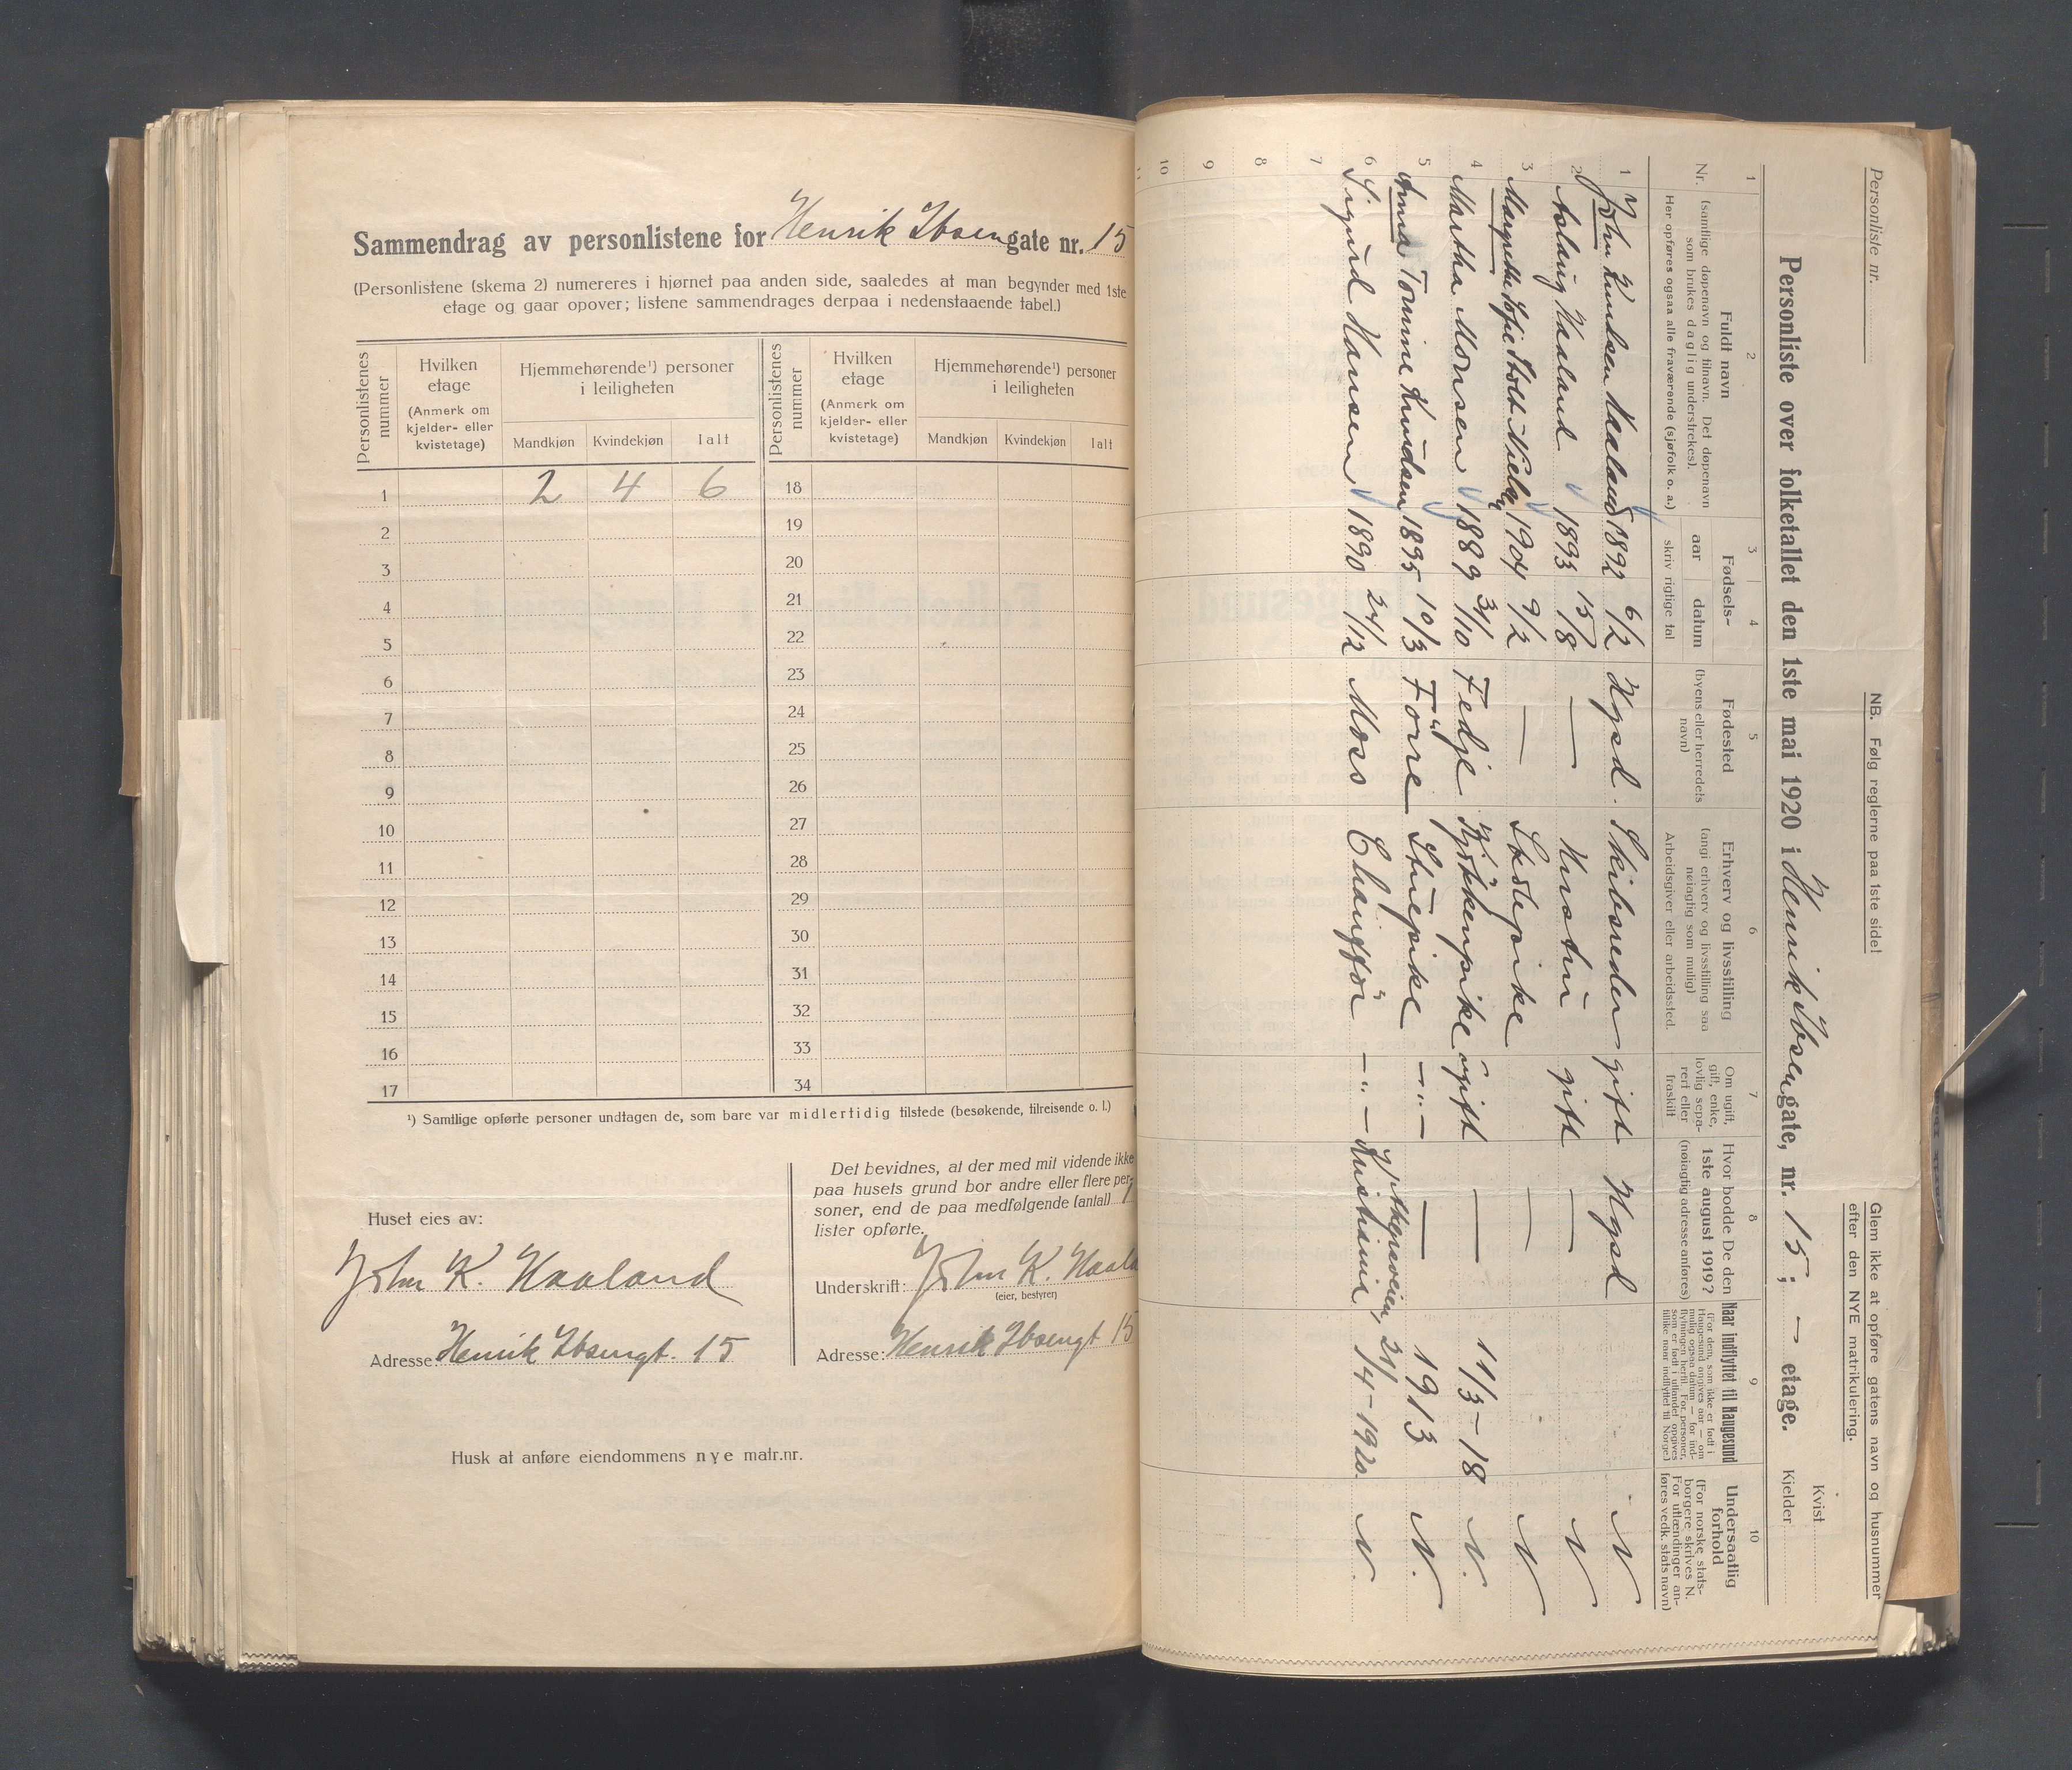 Sammendrag av personlistene for Henrik Ibsengate nr. 15
(Personlistene (skema 2) numereres i hjørnet paa anden side, saaledes at man begynder med 1ste
etage og gaar opover; listene sammendrages derpaa i nedenstaaende tabel.)
Personlistenes nummer
Hvilken etage
(Anmerk om kjelder- eller kvistetage)
Hjemmehørende¹) personer i leiligheten
Mandkjøn Kvindekjøn Ialt
Personlistenes nummer
Hvilken etage
(Anmerk om kjelder- eller kvistetage)
Hjemmehørende¹) personer i leiligheten
Mandkjøn Kvindekjøn Ialt
1 2 4 6 18
2 19
3 20
4 21
5 22
6 23
7 24
8 25
9 26
10 27
11 28
12 29
13 30
14 31
15 32
16 33
17 34
¹) Samtlige opførte personer undtagen de, som bare var midlertidig tilstede (besøkende, tilreisende o. l.)
Huset eies av:
John K. Haaland
Adresse: Henrik Ibsengt. 15
Det bevidnes, at der med mit vidende ikke
paa husets grund bor andre eller flere per-
soner, end de paa medfølgende (antall) 1
lister opførte.
Underskrift: John K. Haala
(eier, bestyrer)
Adresse: Henrik Ibsengt 15
Husk at anføre eiendommens nye matr.nr.
Personliste nr.
NB. Følg reglerne paa 1ste side!
Glem ikke at opføre gatens navn og husnummer
efter den NYE matrikulering.
Personliste over folketallet den 1ste mai 1920 i Henrik Ibsengate, nr. 15; — etage.
Kvist
Kjelder
1 2 3 4 5 6 7 8 9 10
Nr.
Fuldt navn
(samtlige døpenavn og tilnavn. Det døpenavn
som brukes daglig understrekes).
Her opføres ogsaa alle fraværende (sjøfolk o. a.)
Fødsels-
aar datum
skriv rigtige tal
Fødested
(byens eller herredets
navn)
Erhverv og livsstilling
(angi erhverv og livsstilling saa
nøiagtig som mulig)
Arbeidsgiver eller arbeidssted.
Om ugift,
gift, enke,
lovlig sepa-
rert eller
fraskilt
Hvor bodde De den
1ste august 1919?
(nøiagtig adresse anføres)
Naar indflyttet til Haugesund
(For dem, som ikke er født i
Haugesund angives aar — om
mulig ogsaa datum — for ind-
flytningen hertil. For personer,
som er født i utlandet opgives
tillike naar indflyttet til Norge.)
Undersaatlig
forhold
(For norske stats-
borgere skrives N.
For utlændinger an-
føres vedk. stats navn)
1 John Knudsen Haaland 1892 6/2 Hgsd. Skibsreder gift Hgsd N
2 Aslaug Haaland 1893 15/8 — Hustru gift — N
3 Magnhild Sofie Stolt-Nielsen 1904 9/2 — Skolepike — N
4 Martha Monsen 1889 31/10 Fedje Kjøkkenpike ugift — 11/3-18 N.
5 Anna Tomine Knudsen 1895 10/3 Torre Stuepike — " — — 1913 N.
6 Sigurd Hansen 1890 24/12 Moss Chauffør — " — Kristiania 21/4-1920. N.
7
8
9
10
11